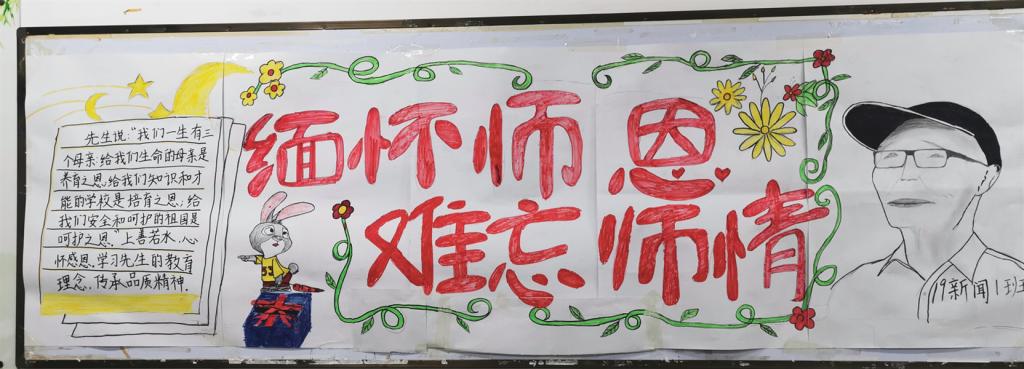 先生说:“我们一生有三
个母亲:给我们生命的母亲是
养育之恩,给我们知识和才
能的学校是培育之恩,给
我们安全和呵护的祖国是
呵护之恩。”上善若水,心
怀感恩,学习先生的教育
理念,传承品质精神.
缅怀师恩
难忘师情
19新闻1班